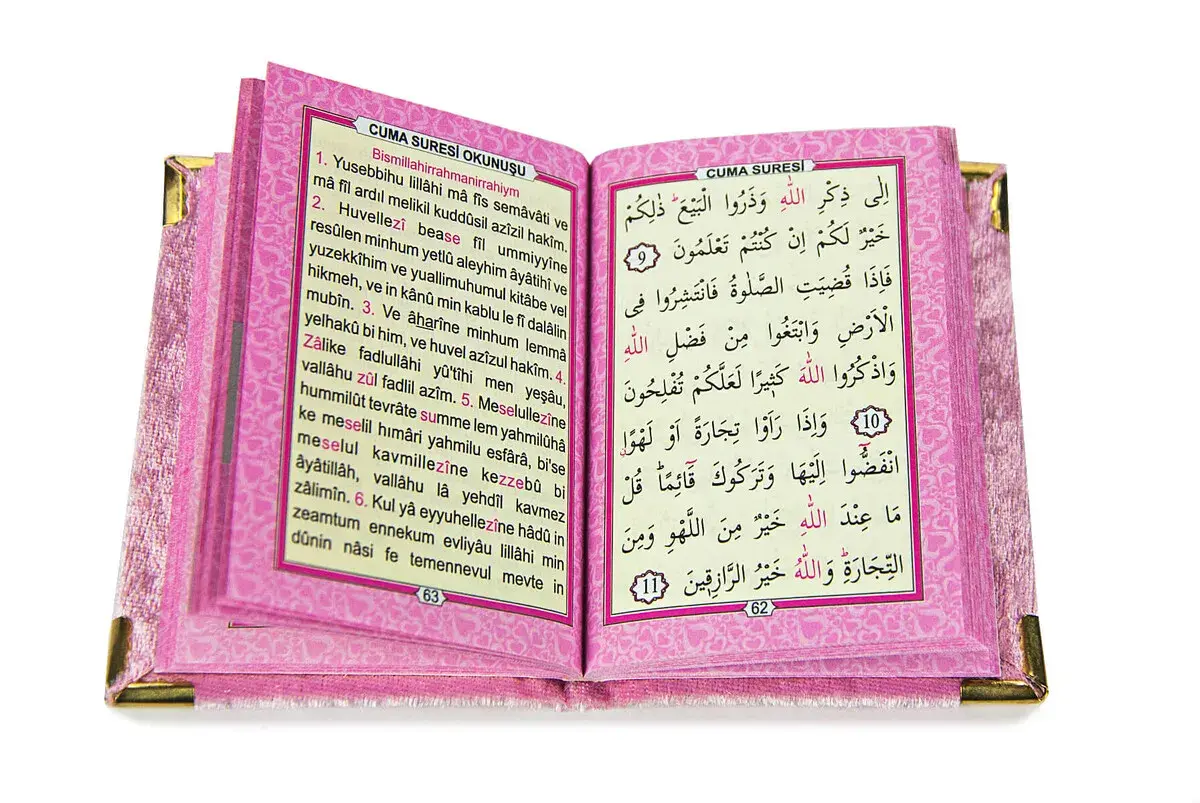 CUMA SURESİ
اِلٰى ذِكْرِ اللّٰهِ وَذَرُوا الْبَيْعَۜ ذٰلِكُمْ
خَيْرٌ لَكُمْ اِنْ كُنْتُمْ تَعْلَمُونَ 9
فَاِذَا قُضِيَتِ الصَّلٰوةُ فَانْتَشِرُوا فِى
الْاَرْضِ وَابْتَغُوا مِنْ فَضْلِ اللّٰهِ
وَاذْكُرُوا اللّٰهَ كَثٖيرًا لَعَلَّكُمْ تُفْلِحُونَ
10 وَاِذَا رَاَوْا تِجَارَةً اَوْ لَهْوًاۨ
انْفَضُّٓوا اِلَيْهَا وَتَرَكُوكَ قَٓائِمًاۜ قُلْ
مَا عِنْدَ اللّٰهِ خَيْرٌ مِنَ اللَّهْوِ وَمِنَ
التِّجَارَةِۜ وَاللّٰهُ خَيْرُ الرَّازِقٖينَ 11
62
CUMA SURESİ OKUNUŞU
Bismillahirrahmanirrahiym
1. Yusebbihu lillâhi mâ fîs semâvâti ve
mâ fîl ardıl melikil kuddûsil azîzil hakîm.
2. Huvellezî bease fîl ummiyyîne
resûlen minhum yetlû aleyhim âyâtihî ve
yuzekkîhim ve yuallimuhumul kitâbe vel
hikmeh, ve in kânû min kablu le fî dalâlin
mubîn. 3. Ve âharîne minhum lemmâ
yelhakû bi him, ve huvel azîzul hakîm. 4.
Zâlike fadlullâhi yû'tîhi men yeşâu,
vallâhu zûl fadlil azîm. 5. Meselullezîne
hummilût tevrâte summe lem yahmilûhâ
ke meselil hımâri yahmilu esfârâ, bi'se
meselul kavmillezîne kezzebû bi
âyâtillâh, vallâhu lâ yehdîl kavmez
zâlimîn. 6. Kul yâ eyyuhellezîne hâdû in
zeamtum ennekum evliyâu lillâhi min
dûnin nâsi fe temennevul mevte in
63